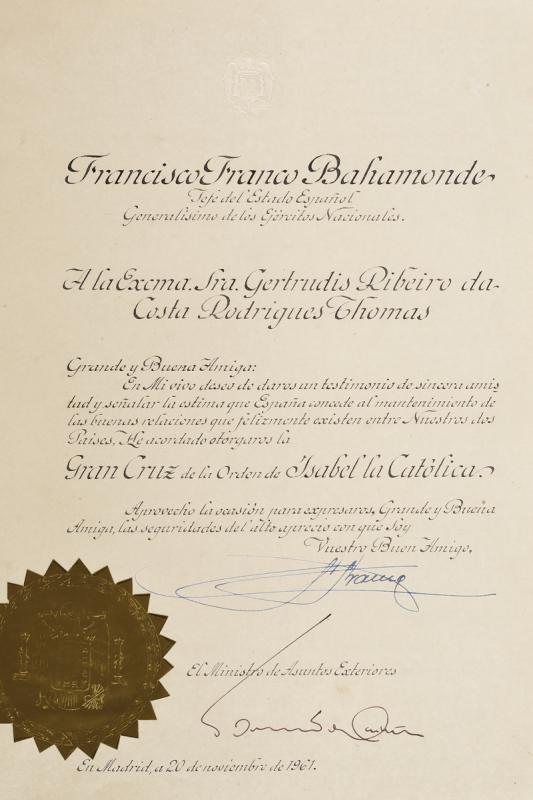 Francisco Franco Bahamonde
Jefe del Estado Español
Generalísimo de los Ejércitos Nacionales.
A la Excma. Sra. Gertrudis Ribeiro da
Costa Rodrigues Thomas
Grande y Buena Amiga:
En Mi vivo deseo de daros un testimonio de sincera amis
tad y señalar la estima que España concede al mantenimiento de
las buenas relaciones que felizmente existen entre Nuestros dos
Países, He acordado otorgaros la
Gran Cruz de la Orden de Isabel la Católica.
Aprovecho la ocasión para expresaros, Grande y Buena
Amiga, las seguridades del alto aprecio con que soy
Vuestro Buen Amigo,
F. Franco
El Ministro de Asuntos Exteriores
En Madrid, a 20 de noviembre de 1961.